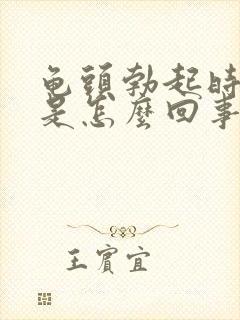 龟頭勃起時
是怎麼回事
王賓宜